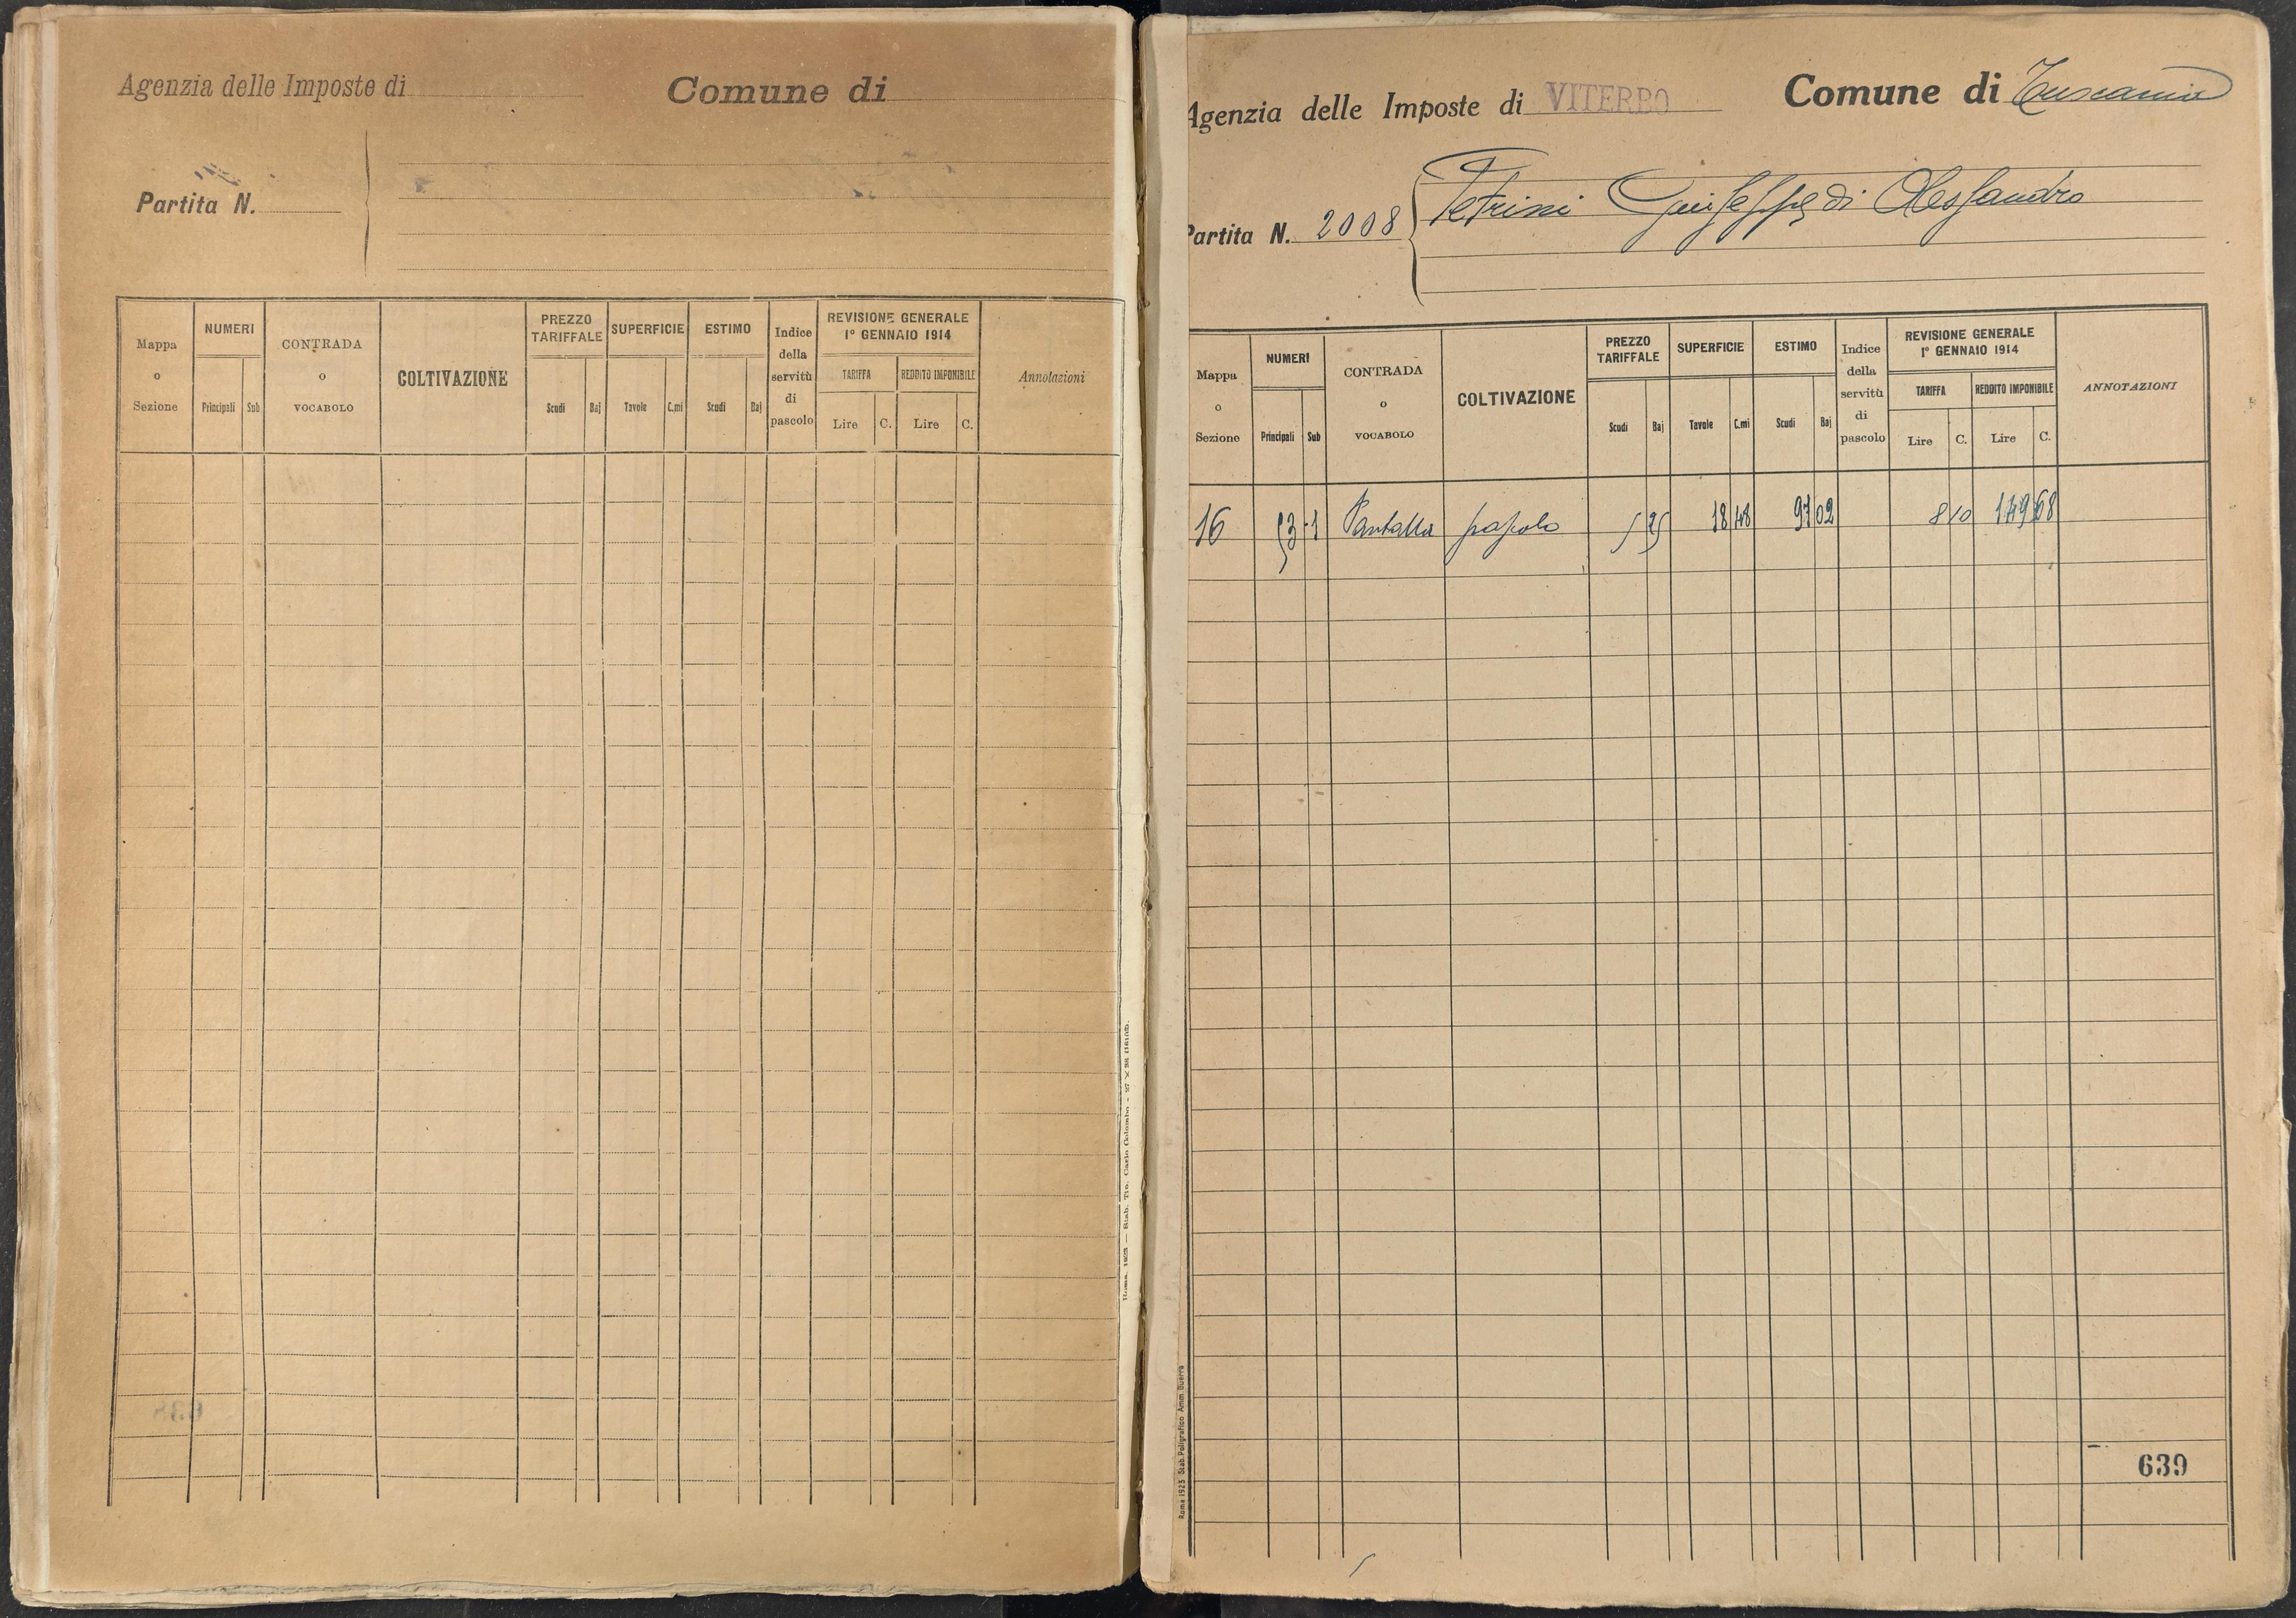 Agenzia delle Imposte di
Comune di
Partita N.
Mappa o Sezione
NUMERI
Principali Sub
CONTRADA o VOCABOLO
COLTIVAZIONE
PREZZO TARIFFALE
Scudi Baj
SUPERFICIE
Tavole C.mi
ESTIMO
Scudi Baj
Indice della servitù di pascolo
REVISIONE GENERALE
1° GENNAIO 1914
TARIFFA REDDITO IMPONIBILE
Lire C. Lire C.
Annotazioni
Agenzia delle Imposte di VITERBO
Comune di Tuscania
Partita N. 2008
Petrini Giuseppe di Alessandro
Mappa o Sezione
NUMERI
Principali Sub
CONTRADA o VOCABOLO
COLTIVAZIONE
PREZZO TARIFFALE
Scudi Baj
SUPERFICIE
Tavole C.mi
ESTIMO
Scudi Baj
Indice della servitù di pascolo
REVISIONE GENERALE
1° GENNAIO 1914
TARIFFA REDDITO IMPONIBILE
Lire C. Lire C.
ANNOTAZIONI
16 53 1 Pantalla pascolo 5 25 18 48 97 02 8 10 149 68
639
Roma 1925 Stab. Poligrafico Amm. Guerra